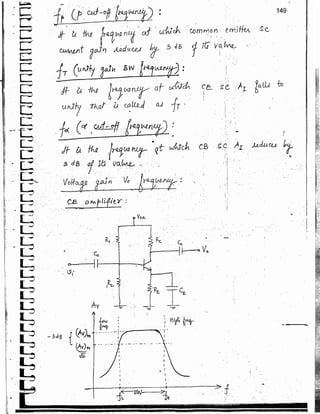 149
fβ (β cut-off frequency) :
It is the frequency at which common emitter SC
current gain reduces by 3 dB of its value.
fT (unity gain BW frequency) :
It is the frequency at which CE SC AI falls to
unity that is called as fT.
fα (α cut-off frequency) :
It is the frequency at which CB SC AI reduces by
3 dB of its value.
Voltage gain Vs frequency :
CE amplifier :
Vcc
R1
Rc
Cc
Vo
Cc
Vi
R2
RE
CE
Av
low freq
High freq
-3dB
(Av)m
(Av)m
√2
BW
f